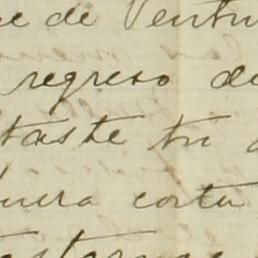 de Ventu
regreso de
taste tu
uera corta